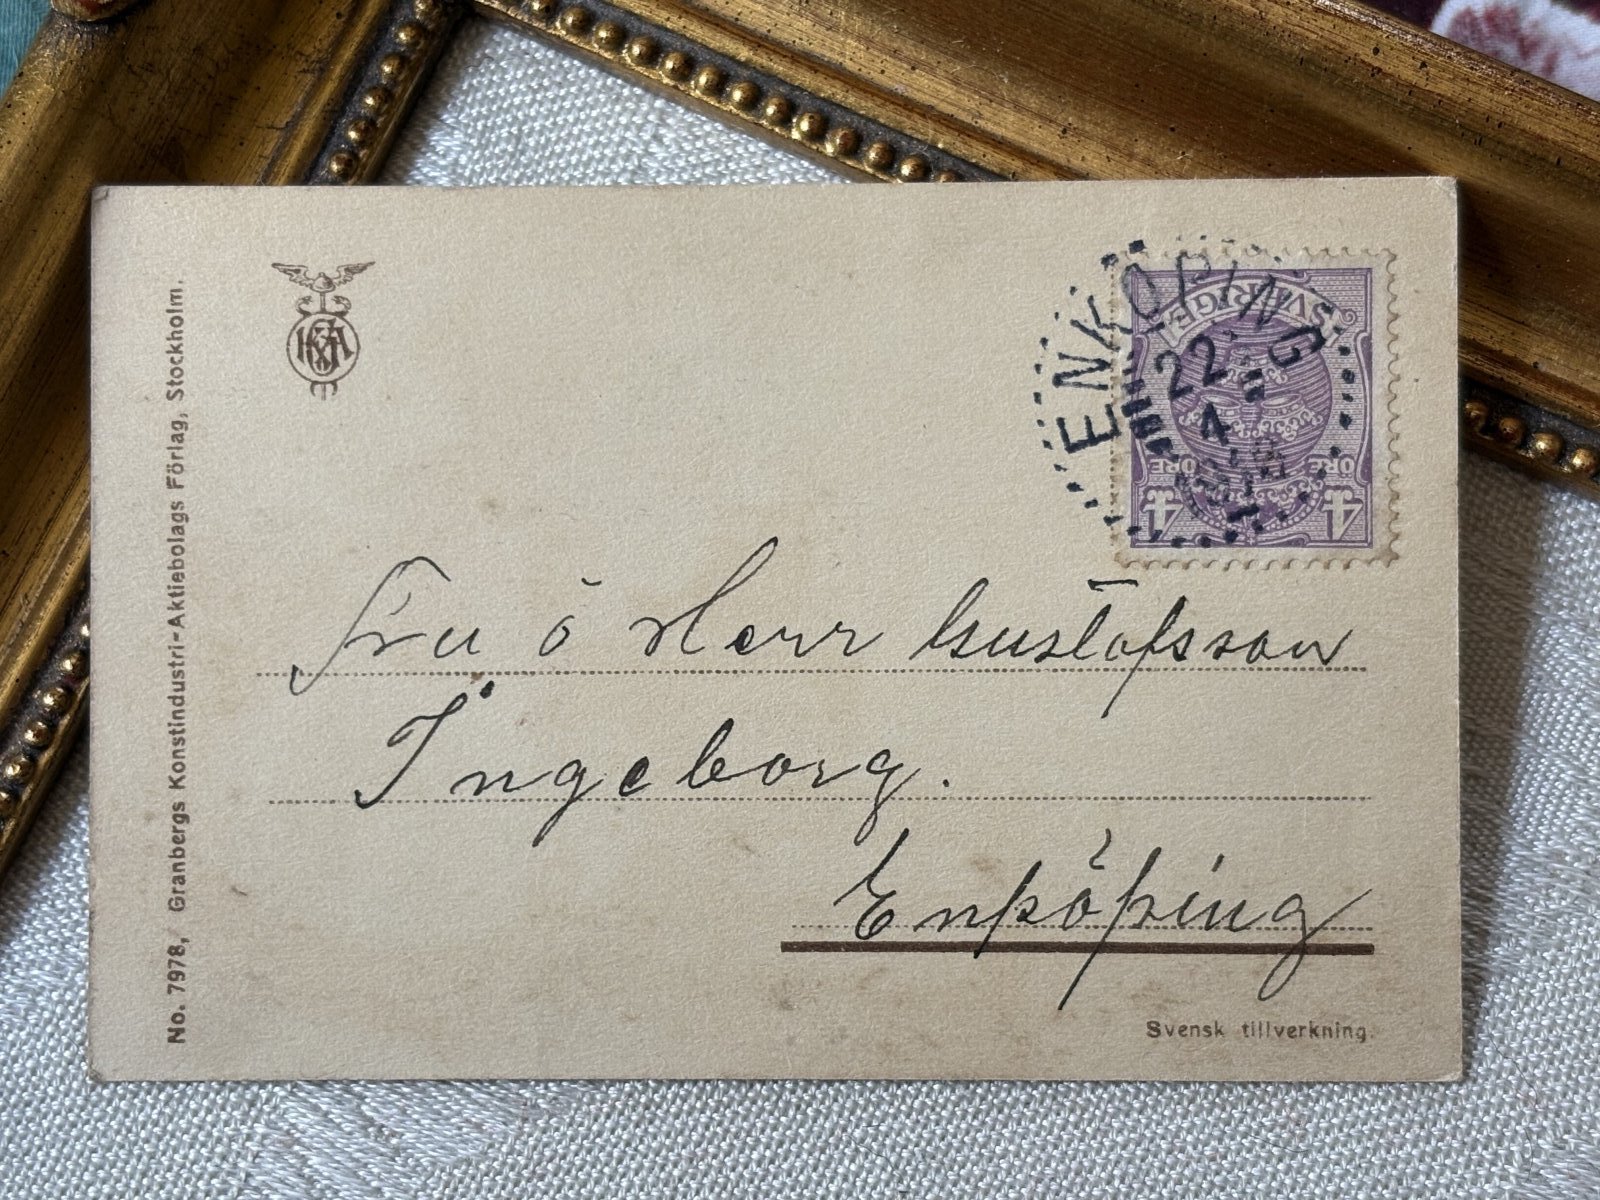 No. 7978, Granbergs Konstindustri-Aktiebolags Förlag, Stockholm.
ENKÖPING
22
4
SVERIGE
ÖRE ÖRE
4 4
Fru ö Herr Gustafsson
Ingeborg.
Enköping
Svensk tillverkning.